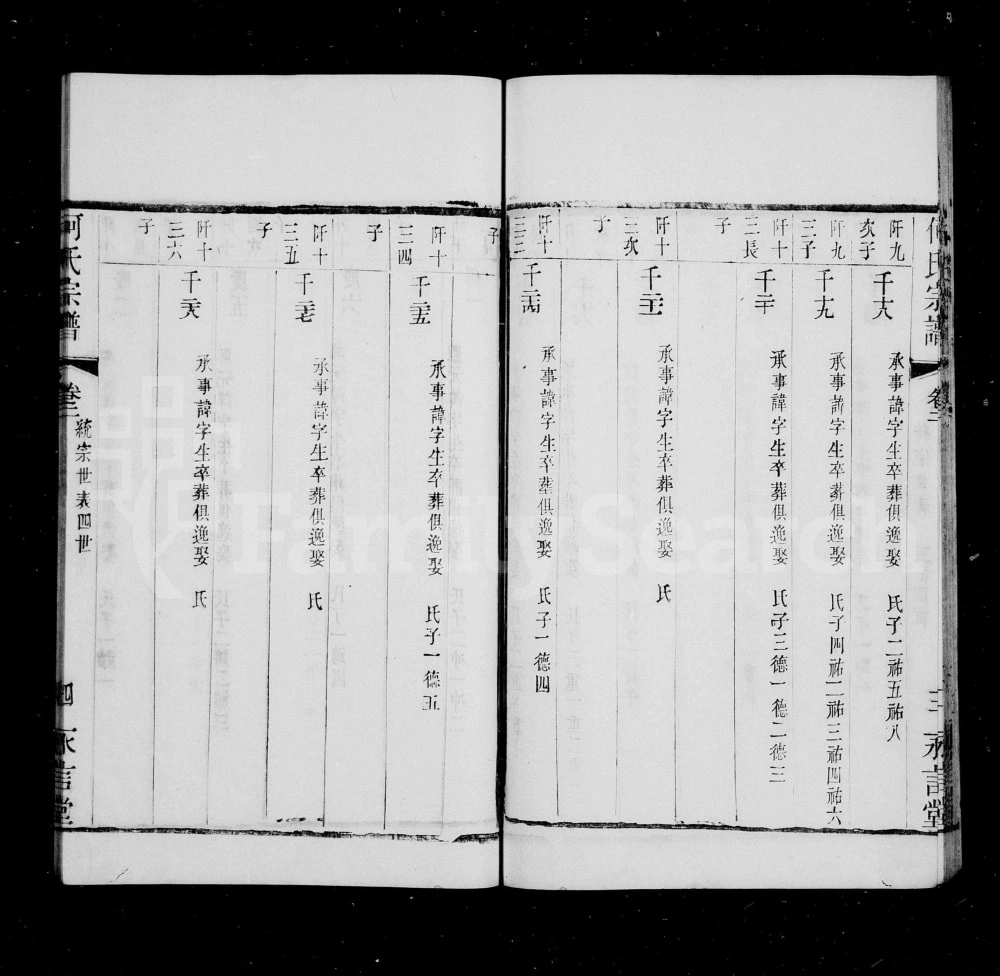 何氏宗譜
卷二
三
永言堂
阡九
次子
千十八
承事諱字生卒葬俱逸娶 氏子二祐五祐八
阡九
三子
千十九
承事諱字生卒葬俱逸娶 氏子四祐二祐三祐四祐六
阡十
三長
子
千二十
承事諱字生卒葬俱逸娶 氏子三德一德二德三
阡十
三次
子
承事諱字生卒葬俱逸娶 氏
阡十
三三
子
千二十四
承事諱字生卒葬俱逸娶 氏子一德四
阡十
三四
子
千二十五
承事諱字生卒葬俱逸娶 氏子一德五
阡十
三五
子
千二十七
承事諱字生卒葬俱逸娶 氏
阡十
三六
子
千二十八
承事諱字生卒葬俱逸娶 氏
何氏宗譜
卷二
統宗世表四世
四
永言堂